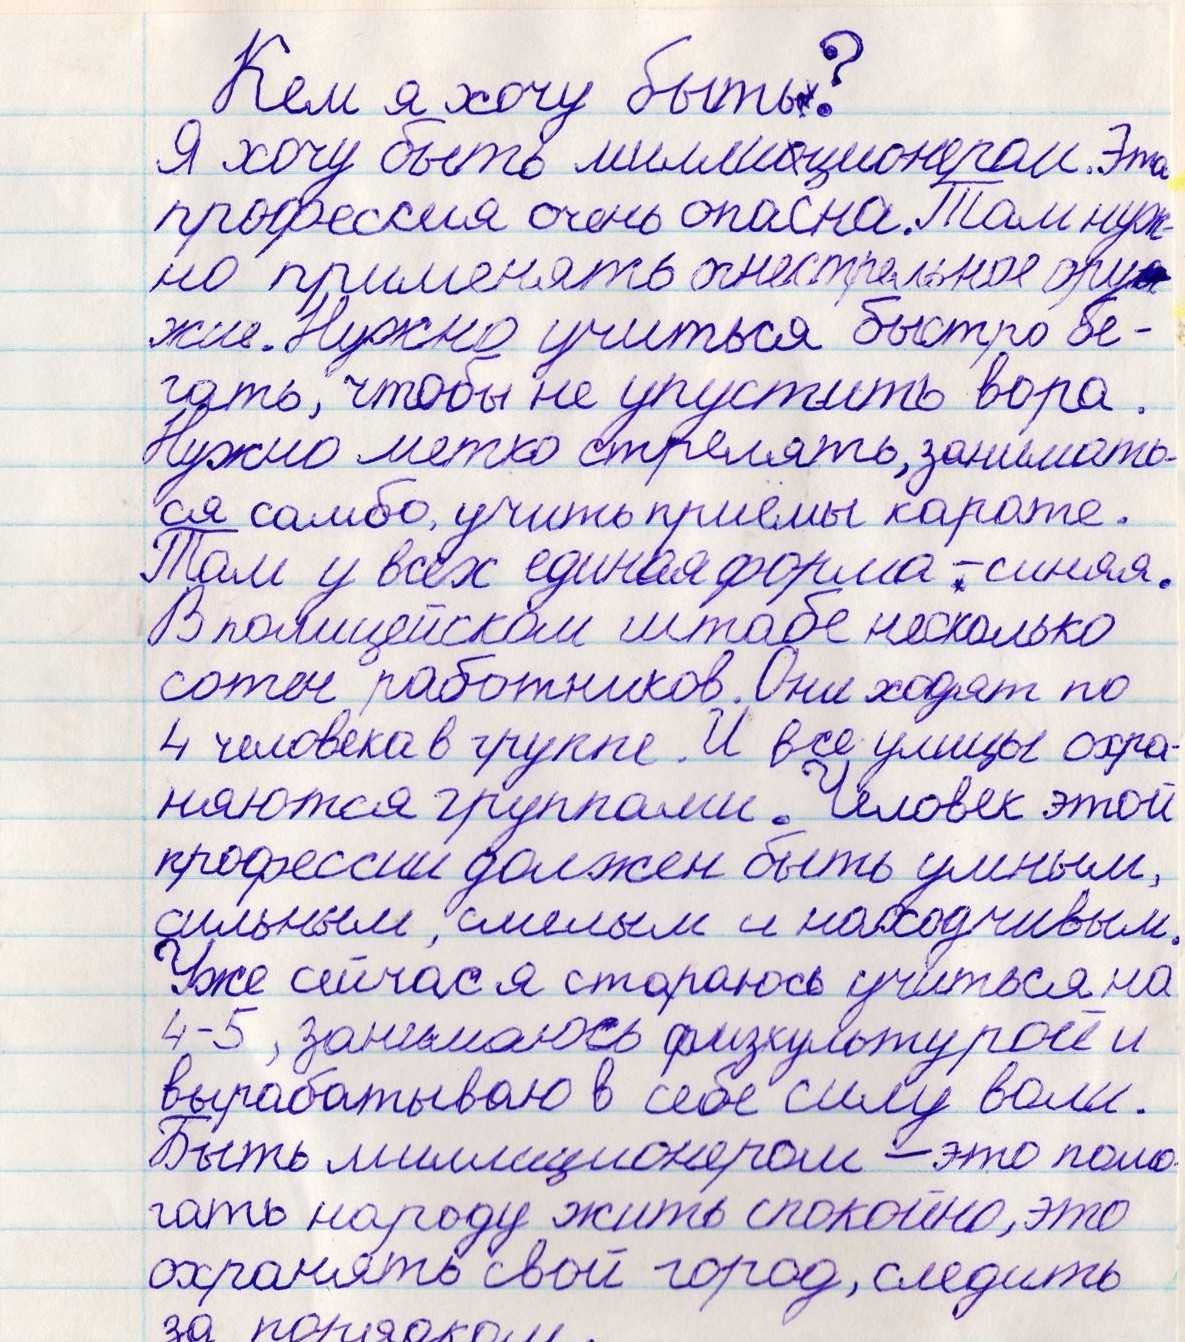 Кем я хочу быть?
Я хочу быть миллиционером. Эта
профессия очень опасна. Там нуж-
но применять огнестрельное ору
жие. Нужно учиться быстро бе-
гать, чтобы не упустить вора.
Нужно метко стрелять, занимать-
ся самбо, учить приёмы карате.
Там у всех единая форма - синяя.
В полицейском штабе несколько
сотен работников. Они ходят по
4 человека в группе. И все улицы охра-
няются группами. Человек этой
профессии должен быть умным,
сильным, смелым и находчивым.
Уже сейчас я стараюсь учиться на
4-5, занимаюсь физкультурой и
вырабатываю в себе силу воли.
Быть миллиционером - это помо-
гать народу жить спокойно, это
охранять свой город, следить
за порядком.